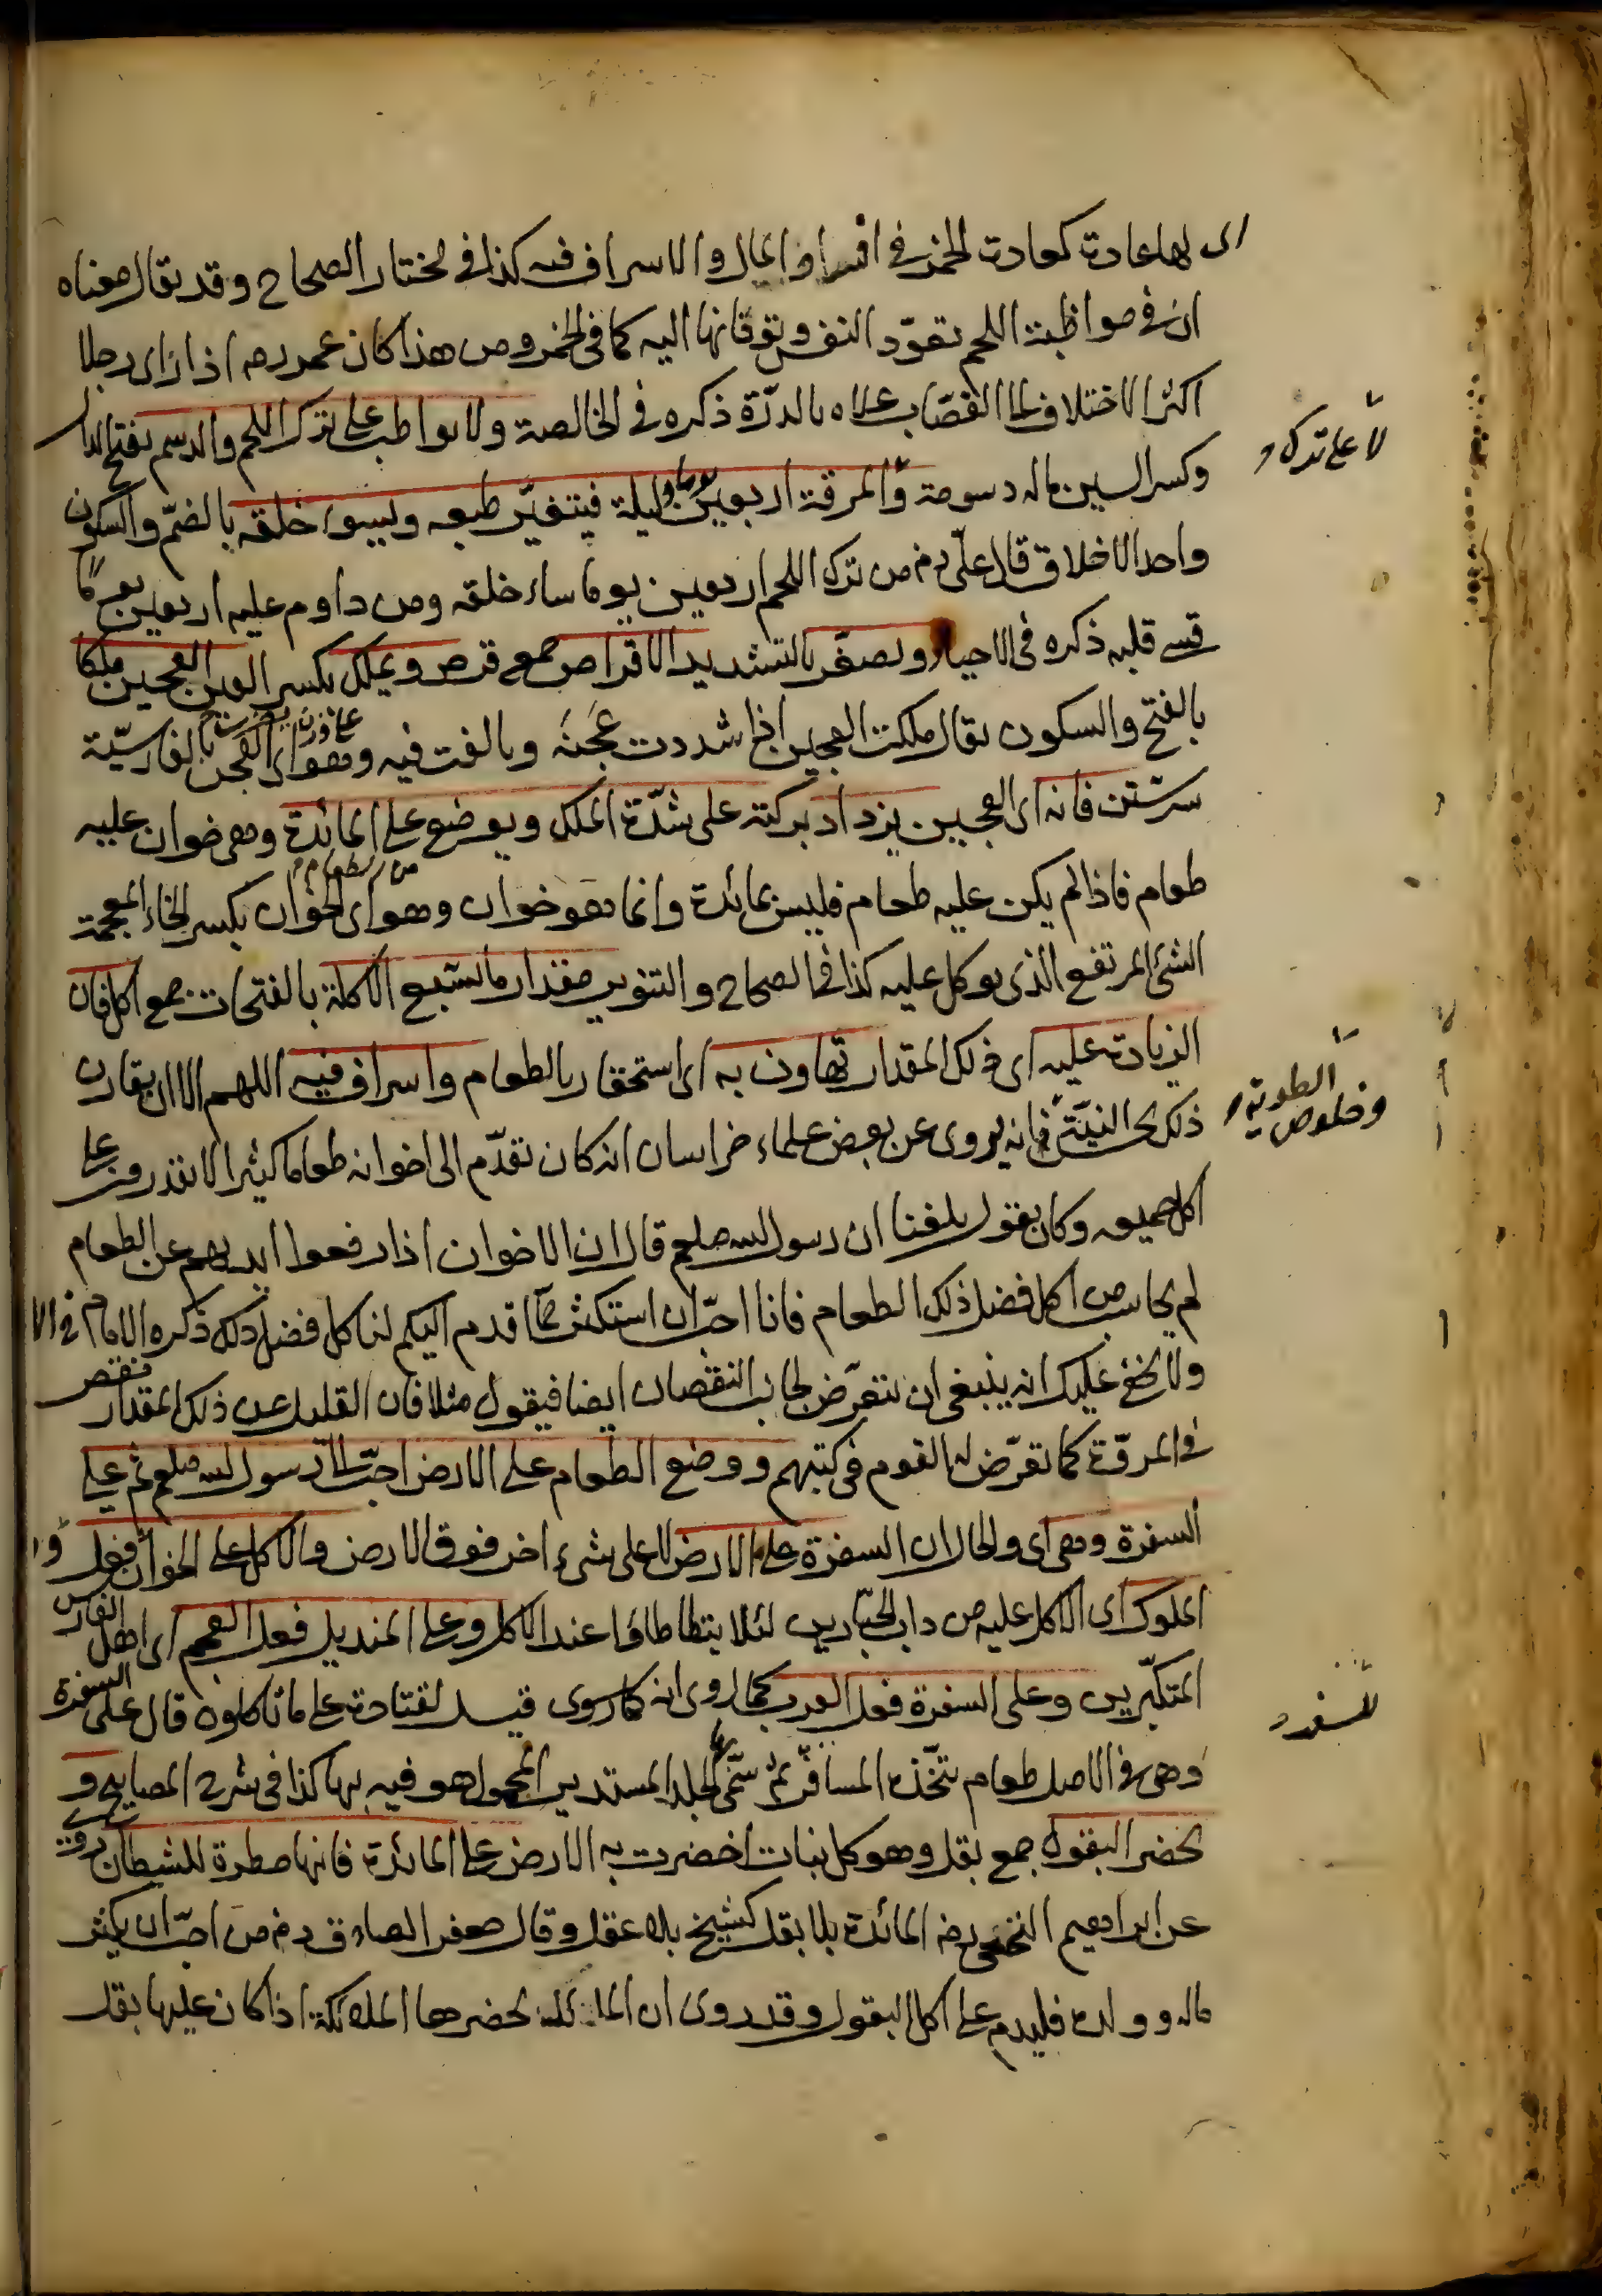 اى لها عادة كعادة الخمر فى افساد المال والاسراف فيه كذا فى مختار الصحاح وقد يقال معناه
ان فى مواظبة اللحم تعوّد النفس وتوقانها اليه كما فى الخمر ومن هذا كان عمر رضه اذا راى رجلا
اكثر الاختلاف الى القصّاب علاه بالدرّة ذكره فى الخالصة ولا يواظب على ترك اللحم والدسم بفتح الدال
لا على تركه
وكسر السين ماله دسومة والمرقة اربعين يوما وليلة فيتغيّر طبعه ويسوء خلقه بالضمّ والسكون
واحد الاخلاق قال علىّ رم من ترك اللحم اربعين يوما ساء خلقه ومن داوم عليه اربعين يوما
قسى قلبه ذكره فى الاحياء ويصغّر بالتشديد الاقراص جمع قرص ويملك بكسر العين العجين ملكا
بالفتح والسكون يقال ملكت العجين اذا شددت عَجنَه وبالغت فيه وهو اى العجن بالفارسيّة
سرشتن فانه اى العجين يزداد بركته على شدّة الملك ويوضع على المائدة وهى خوان عليه
طعام فاذا لم يكن عليه طعام فليس بمائدة وانما هو خوان وهو اى الخوان بكسر الخاء المعجمة
من الطعام
الشئ المرتفع الذى يوكل عليه كذا فى الصحاح والتنوير مقدار ما يشبع الاكلة بالفتحات جمع اكل فان
الزيادة عليه اى ذلك المقدار تهاون به اى استحقار بالطعام واسراف فيه اللهم الا ان يقارن
ذلك بحسن النيّة فانه يروى عن بعض علماء خراسان انه كان تقدّم الى اخوانه طعاما كثيرا لا يقدرون على
وخلوص الطوية
اكل جميعه وكان يقول بلغنا ان رسول الله صلعم قال ان الاخوان اذا رفعوا ايديهم عن الطعام
لم يحاسب من اكل فضل ذلك الطعام فانا احبّ ان استكثر مما اقدم اليكم لناكل فضل ذلك ذكره الامام فى الا
ولا يخفى عليك انه ينبغى ان يتعرّض لجانب النقصان ايضا فيقول مثلا فان القليل عن ذلك المقدار نقص
فى المروّة كما تعرّض له القوم فى كتبهم ووضع الطعام على الارض احبّ الى رسول الله صلعم ثم على
السفرة وهى اى والحال ان السفرة على الارض لا على شىء اخر فوق الارض والاكل على الخوان فعل
الملوك اى الاكل عليه من داب الجبّارين لئلا يتطاطاؤا عند الاكل وعلى المنديل فعل العجم اى اهل الفارس
المتكبّرين وعلى السفرة فعل العرب كما روى انه كما روى قيل لقتادة على ما تاكلون قال على السفرة
للسفر
وهى فى الاصل طعام يتخّذه المسافر ثم سمّى بها الجلد المستدير المحمول هو فيه بها كذا فى شرح المصابيح و
يحضر البقول جمع بقل وهو كل نبات اخضرت به الارض على المائدة فانها مطردة للشيطان
عن ابراهيم النخعى رضه المائدة بلا بقل كشيخ بلا عقل وقال جعفر الصادق رم من احبّ ان يكثر
ماله وولده فليدم على اكل البقول وقد روى ان المائدة يحضرها الملائكة اذا كان عليها بقل